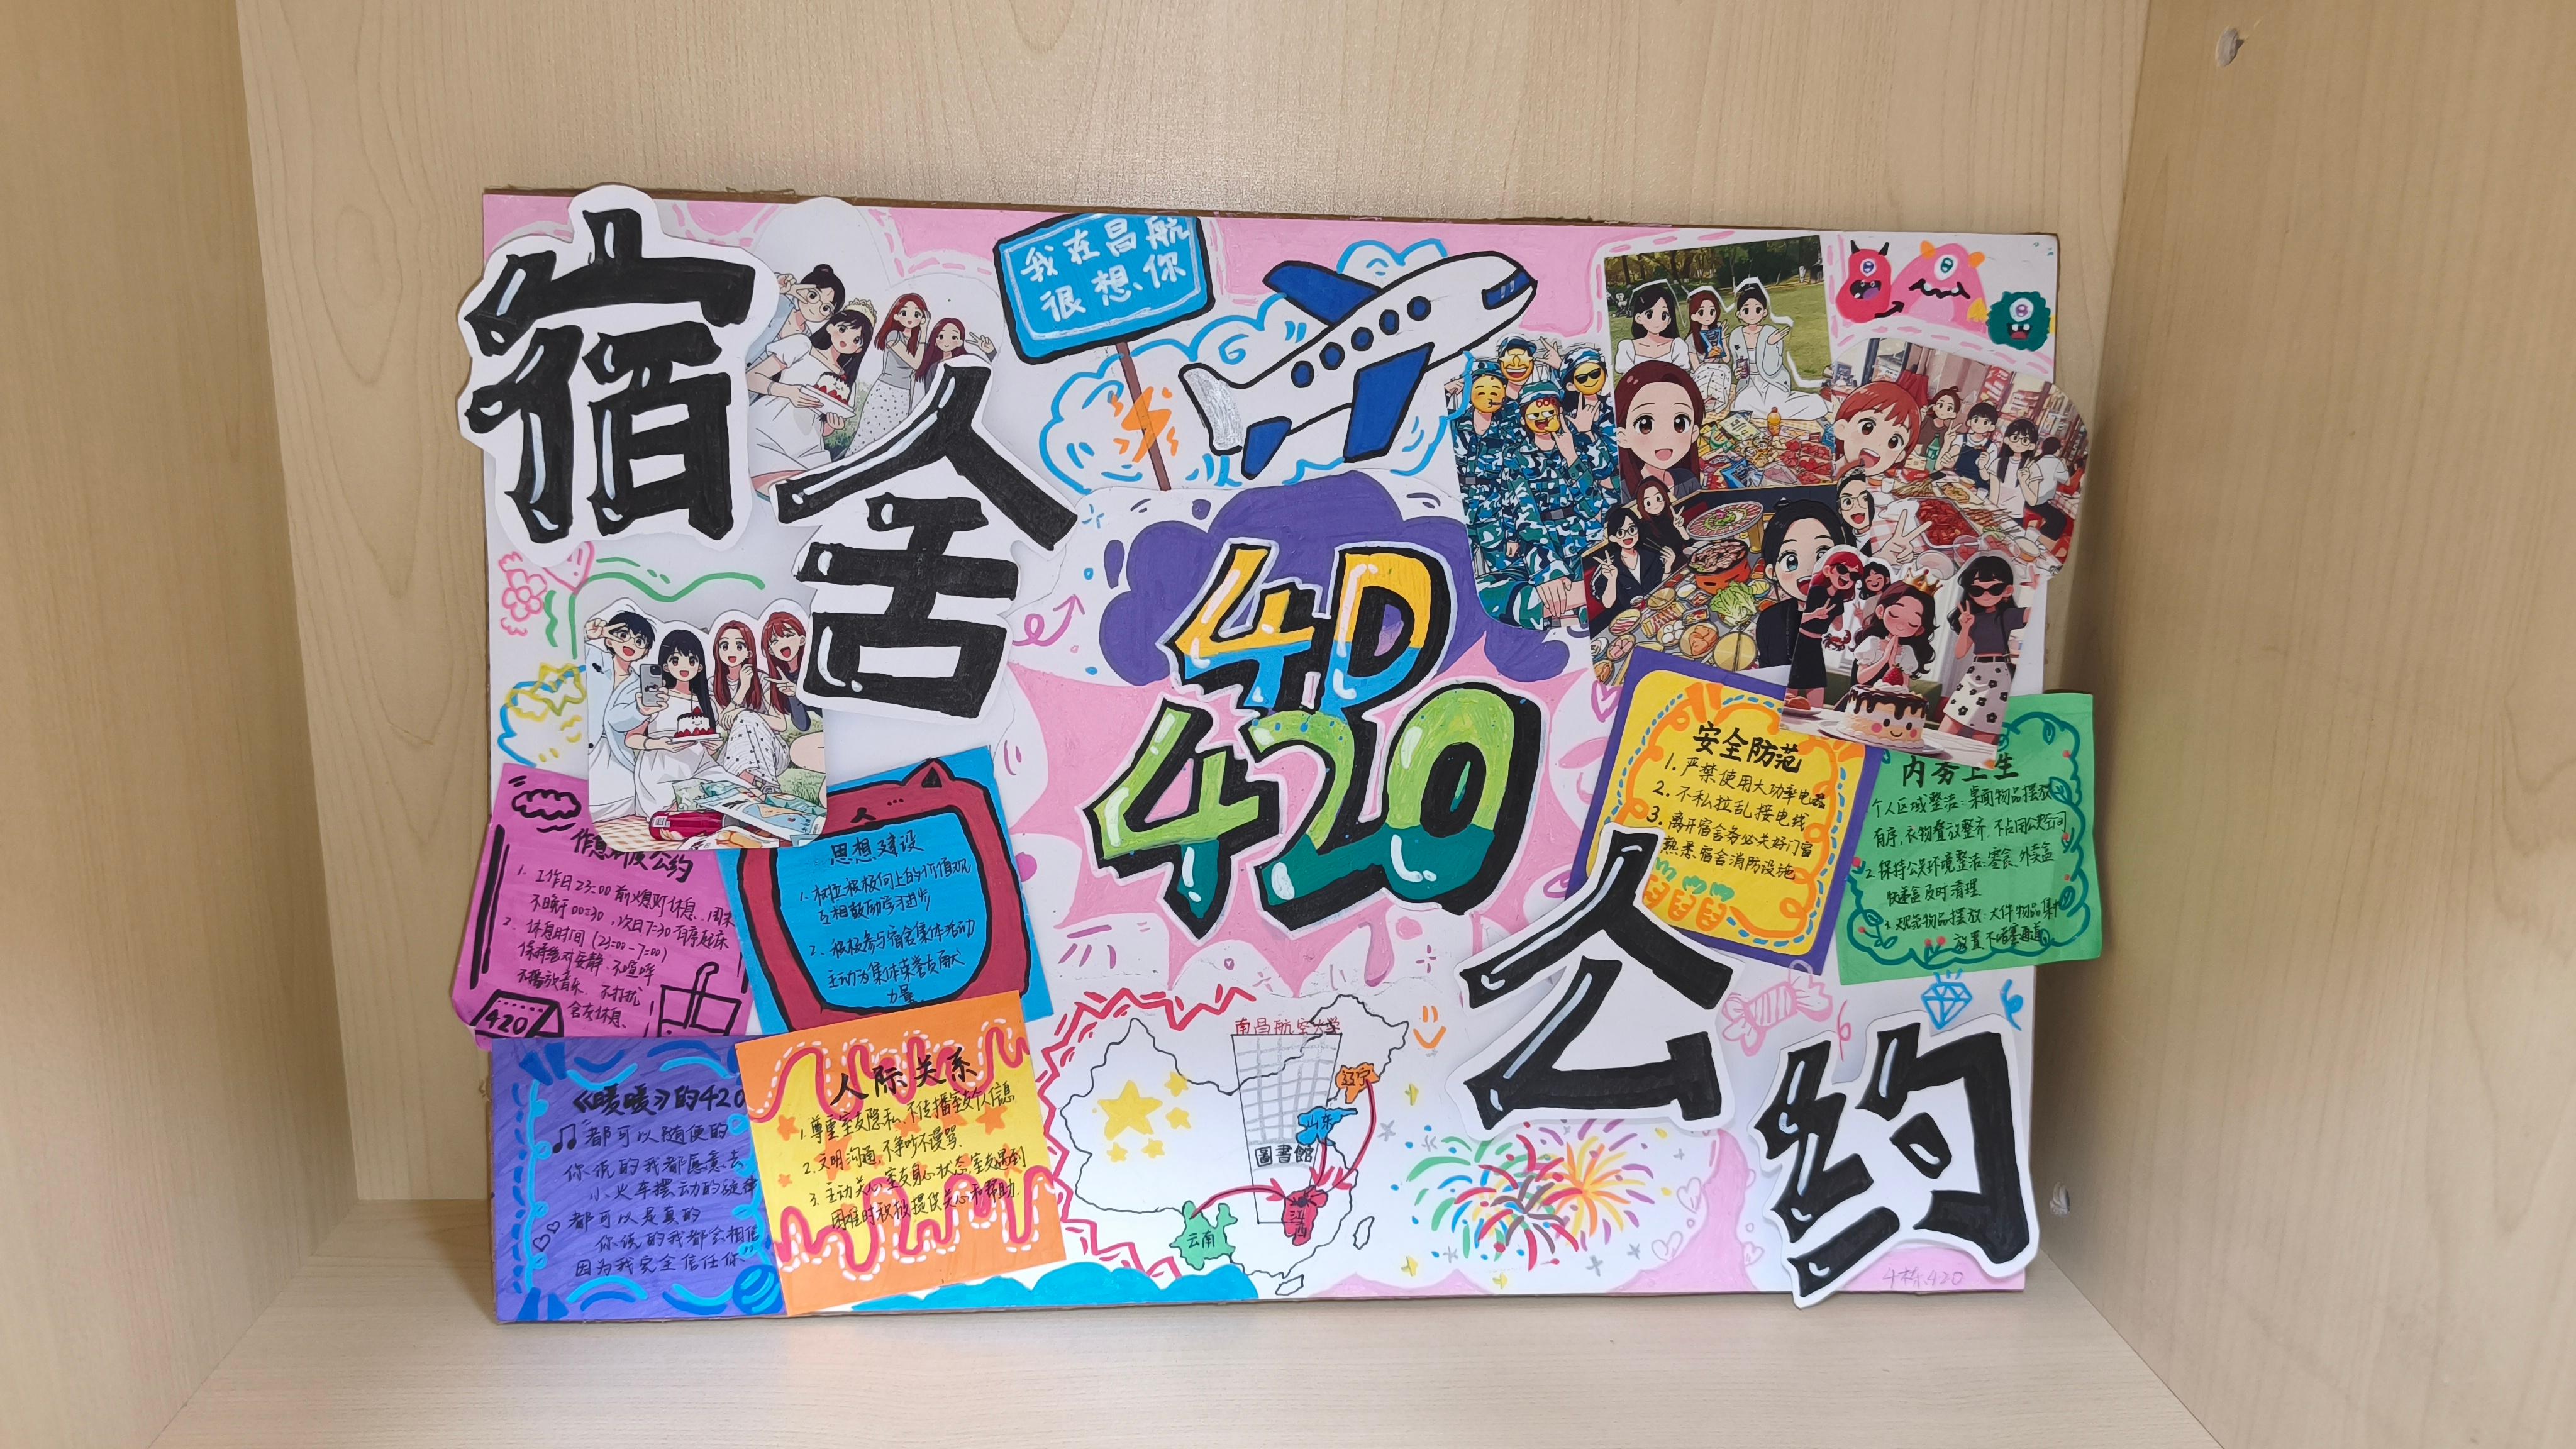 宿舍公约
我在昌航
很想你
4D
420
作息制度公约
1. 工作日23:00前熄灯休息.周末
不晚于00:30,次日7:30有序起床
2. 休息时间(23:00-7:00)
保持绝对安静.不喧哗
不播放音乐.不打扰
舍友休息.
420
思想建设
1. 树立积极向上的价值观
互相鼓励学习进步
2. 积极参与宿舍集体活动
主动为集体荣誉贡献
力量
安全防范
1. 严禁使用大功率电器
2. 不私拉乱接电线
3. 离开宿舍务必关好门窗
熟悉宿舍消防设施
内务卫生
个人区域整洁:桌面物品摆放
有序,衣物叠放整齐.不占用公共空间
2. 保持公共环境整洁:零食、外卖盒
快递盒及时清理.
3. 规范物品摆放:大件物品集中
放置不堵塞通道
《暖暖》的420
都可以随便的
你说的我都愿意去
小火车摆动的旋律
都可以是真的
你说的我都会相信
因为我完全信任你
人际关系
1. 尊重室友隐私、不传播室友个人信息
2. 文明沟通,不争吵不谩骂.
3. 主动关心室友身心状态,室友遇到
困难时积极提供关心和帮助.
南昌航空大学
圖書館
辽宁
山东
江西
云南
4栋420